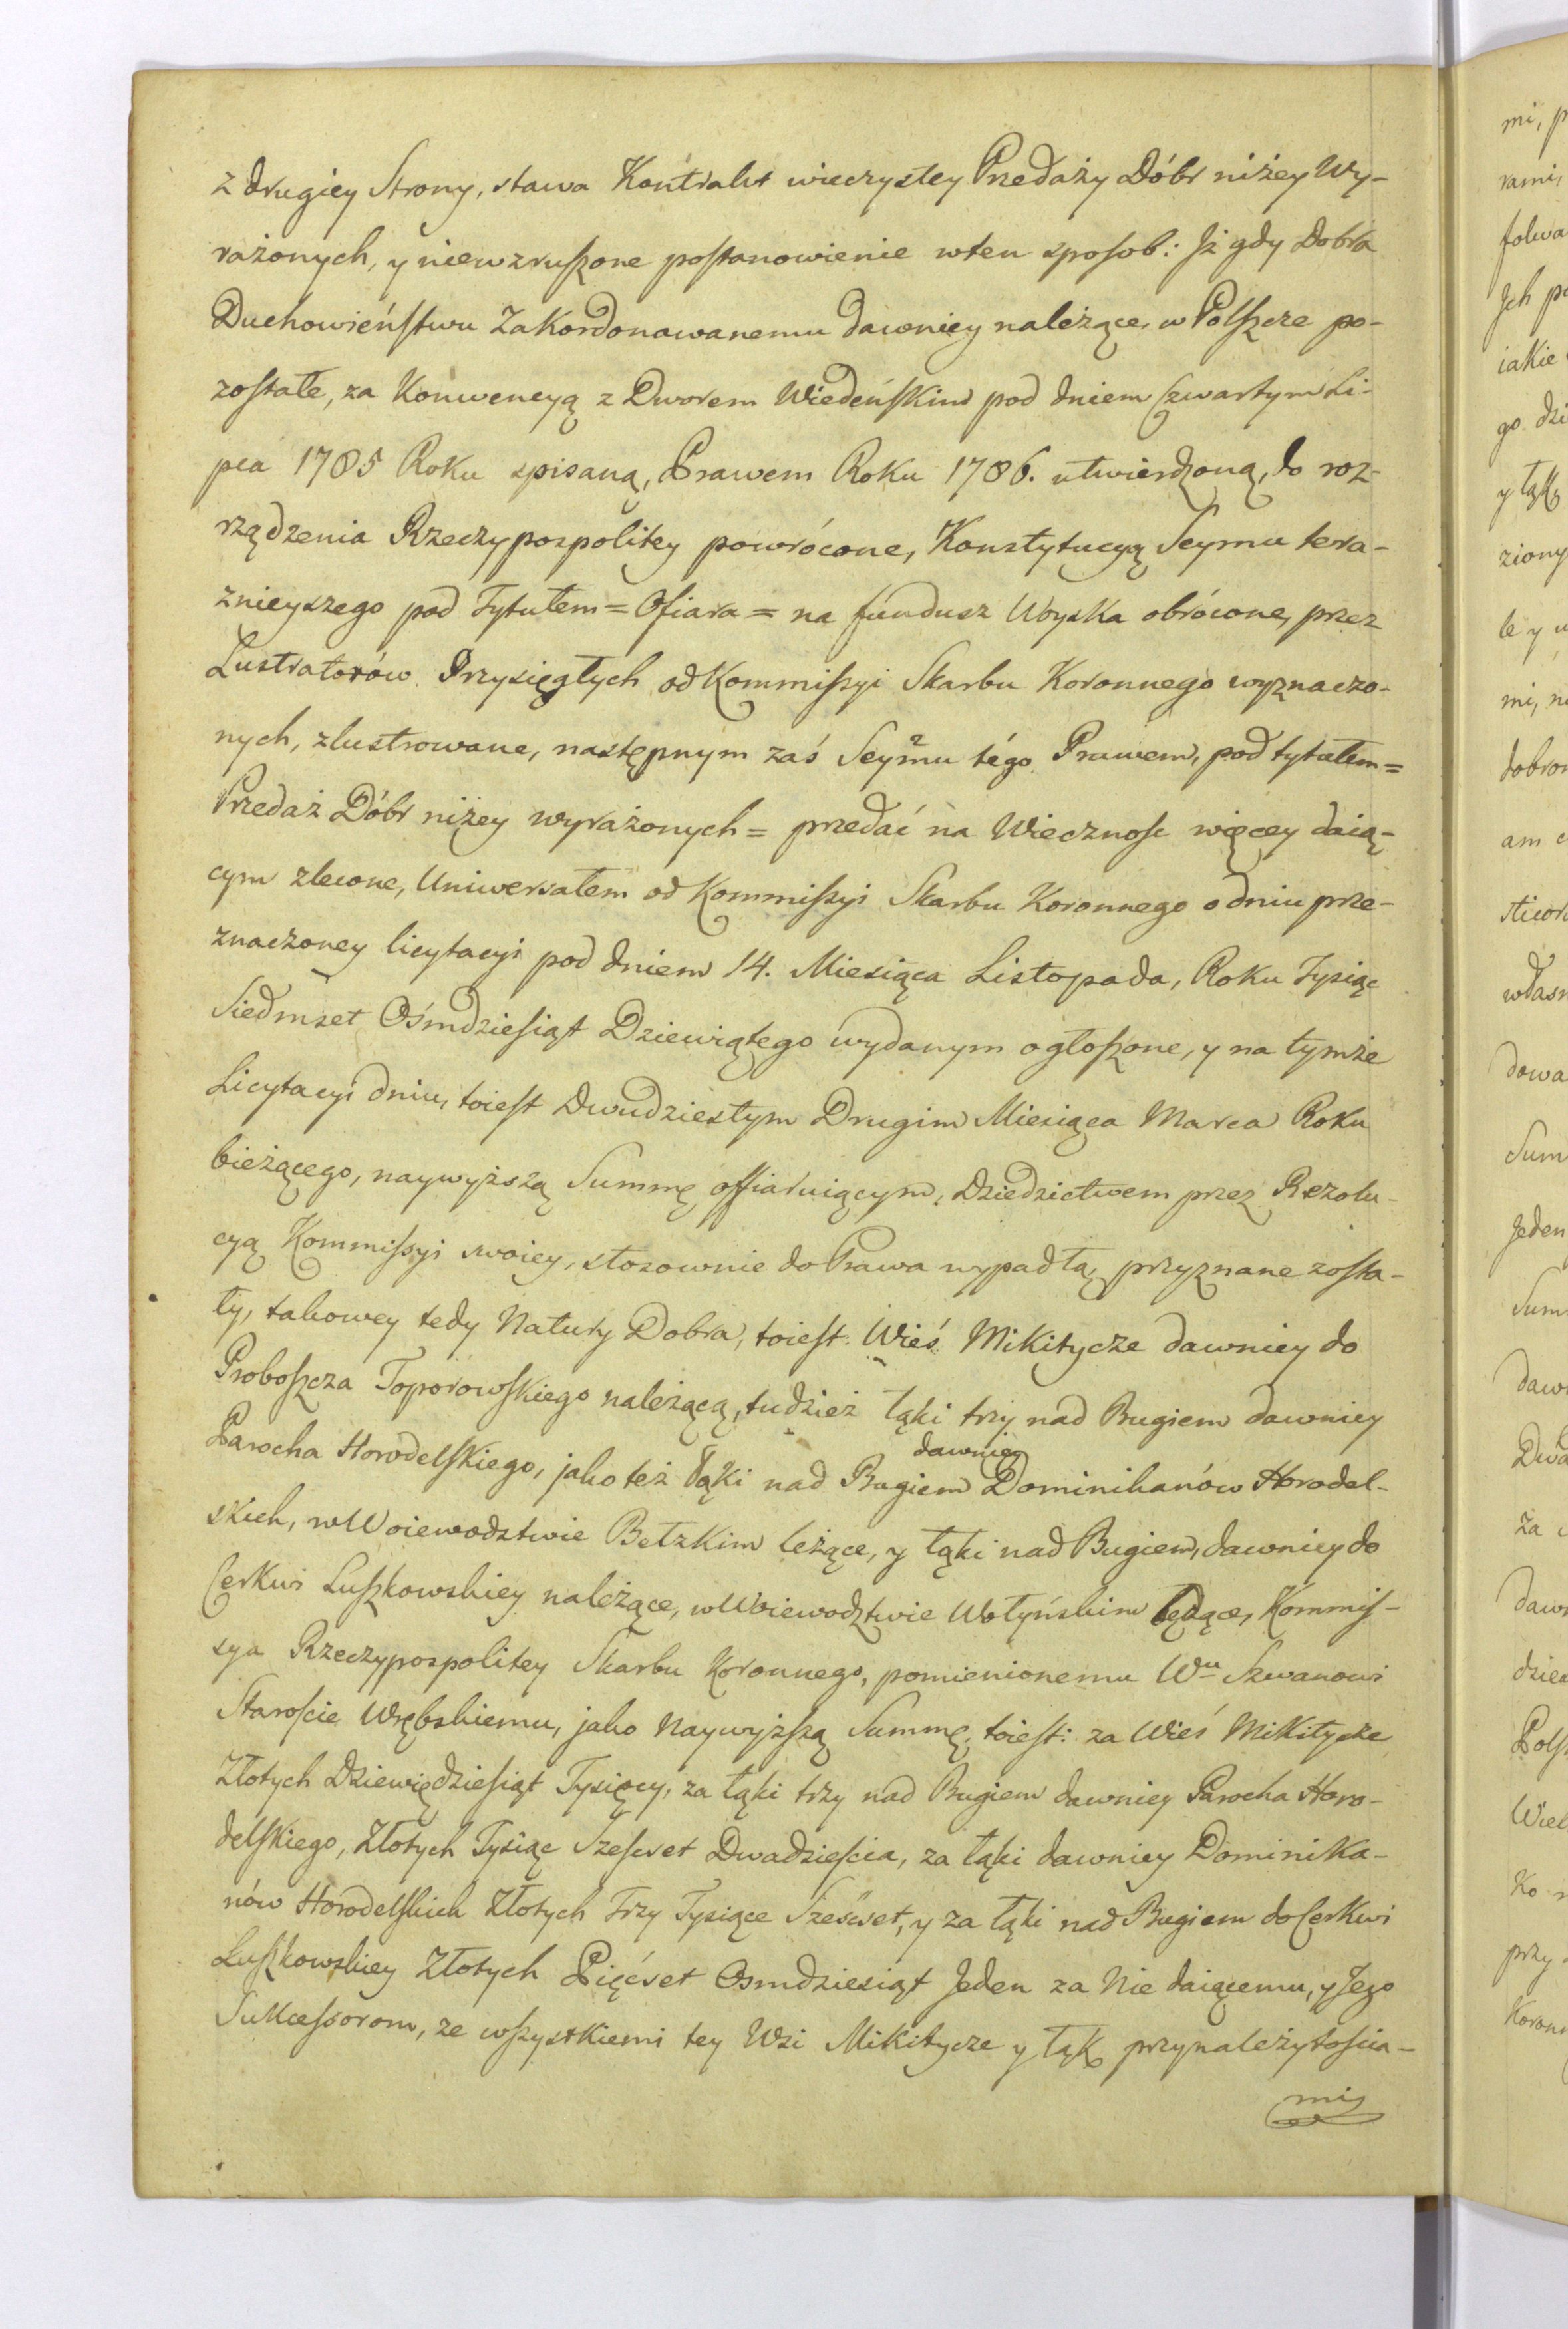 z drugiey Strony, stawa Kontrakt wieczystey Przedaży Dóbr niżey Wy-
rażonych, y niewzruszone postanowienie wten sposob: Jż gdy Dobra
Duchowieństwu Zakordonowanemu dawniey należące, w Polszcze po-
zostałe, za Konwencyą z Dworem Wiedeńskim pod dniem Czwartym Li-
pca 1785 Roku spisaną, Prawem Roku 1786. utwierdzoną, do roz-
rządzenia Rzeczypospolitey powrócone, Konstytucyą Seymu tera-
znieyszego pod Tytułem = Ofiara = na fundusz Woyska obrócone, przez
Lustratorów Przysięgłych od Kommissyi Skarbu Koronnego wyznaczo-
nych, zlustrowane, następnym zaś Seymu tégo Prawem, pod tytułem =
Przedaż Dóbr niżey wyrażonych = przedać na Wiecznosc więcey daią-
cym zlecone, Uniwersałem od Kommissyi Skarbu Koronnego o dniu prze-
znaczoney licytacyi pod dniem 14. Miesiąca Listopada, Roku Tysiąc
Siedmset Ośmdziesiąt Dziewiątego wydanym ogłoszone, y na tymże
Licytacyi dniu, toiest Dwudziestym Drugim Miesiąca Marca Roku
bieżącego, naywyższą Summę offiaruiącym, Dziedzictwem przez Rezolu-
cyą Kommissyi swoiey, stosownie do Prawa wypadłą, przyznane zosta-
ły, takowey tedy Natury Dobra, toiest: Wieś Mikitycze dawniey do
Proboszcza Toporowskiego należącą, tudzież łąki trzy nad Bugiem dawniey
Parocha Horodelskiego, jako też łąki nad Bugiem dawniey Dominikanów Horodel-
skich, w Woiewodztwie Bełzkim leżące, y łąki nad Bugiem, dawniey do
Cerkwi Luszkowskiey należące, w Woiewodztwie Wołyńskim będące, Kommis-
sya Rzeczypospolitey Skarbu Koronnego, pomienionemu Wu Szwanowi
Staroscie Wrębskiemu, jako Naywyższą Summę, toiest: za Wieś Mikitycze
Złotych Dziewięćdziesiąt Tysięcy, za łąki trzy nad Bugiem dawniey Parocha Horo-
delskiego, Złotych Tysiąc Szescset Dwadziescia, za łąki dawniey Dominika-
nów Horodelskich Złotych Trzy Tysiące Sześcset, y za łąki nad Bugiem do Cerkwi
Luszkowskiey Złotych Pięćset Osmdziesiąt Jeden za Nie daiącemu, y Jego
Sukcessorom, ze wszystkiemi tey Wsi Mikitycze y łąk przynależytoscia-
mi,